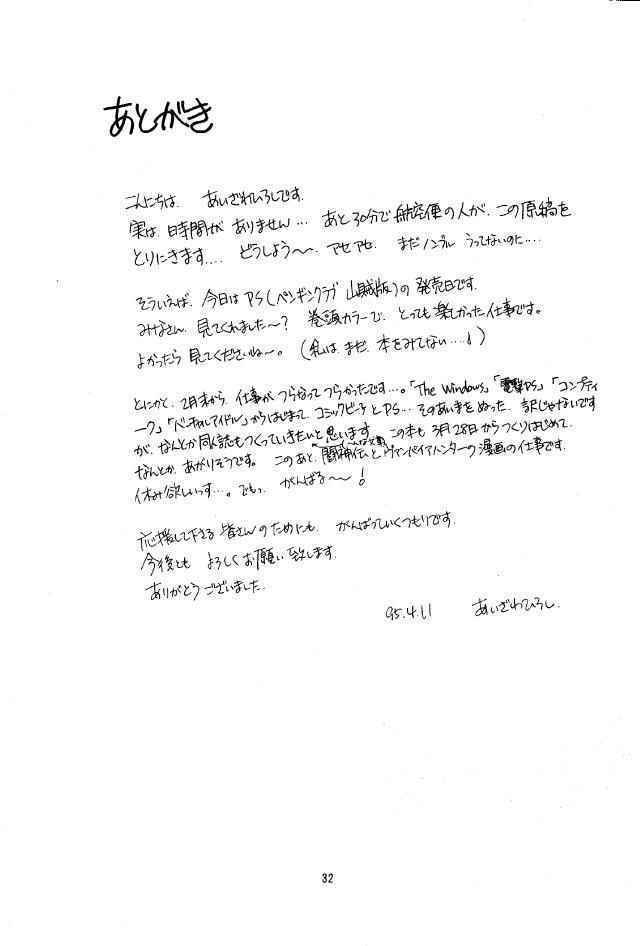 あとがき
こんにちは あいざわひろしです.
実は 時間が ありません… あと 30分で 航空便の人が, この 原稿を
とりにきます…. どうしよう〜. アセアセ. まだノンブル うってないのに….
そういえば, 今日は PS(ペンギンクラブ 山賊版)の 発売日です.
みなさん, 見てくれました〜? 巻頭カラーで, とっても 楽しかった仕事です。
よかったら 見てくださいね〜。 (私は, まだ, 本をみてない….!)
とにかく, 2月末から, 仕事が つらなって つらかったです…。「The Windows」「電撃PS」「コンプティ
ーク」「バーチャルアイドル」からはじまって コミックビーチと PS… そのあいまをぬった, 訳じゃないです
が, なんとか 同人誌も つくっていきたいと 思います. この本も 3月28日から つくりはじめて,
なんとか, あがりそうです。 このあと, 闘神伝と ヴァンパイアハンターの 漫画の仕事です.
休み 欲しいっス…。でもっ, がんばる〜!
応援して下さる 皆さんのためにも, がんばっていくつもりです.
今後とも よろしくお願い致します.
ありがとうございました.
95.4.11 あいざわひろし.
32